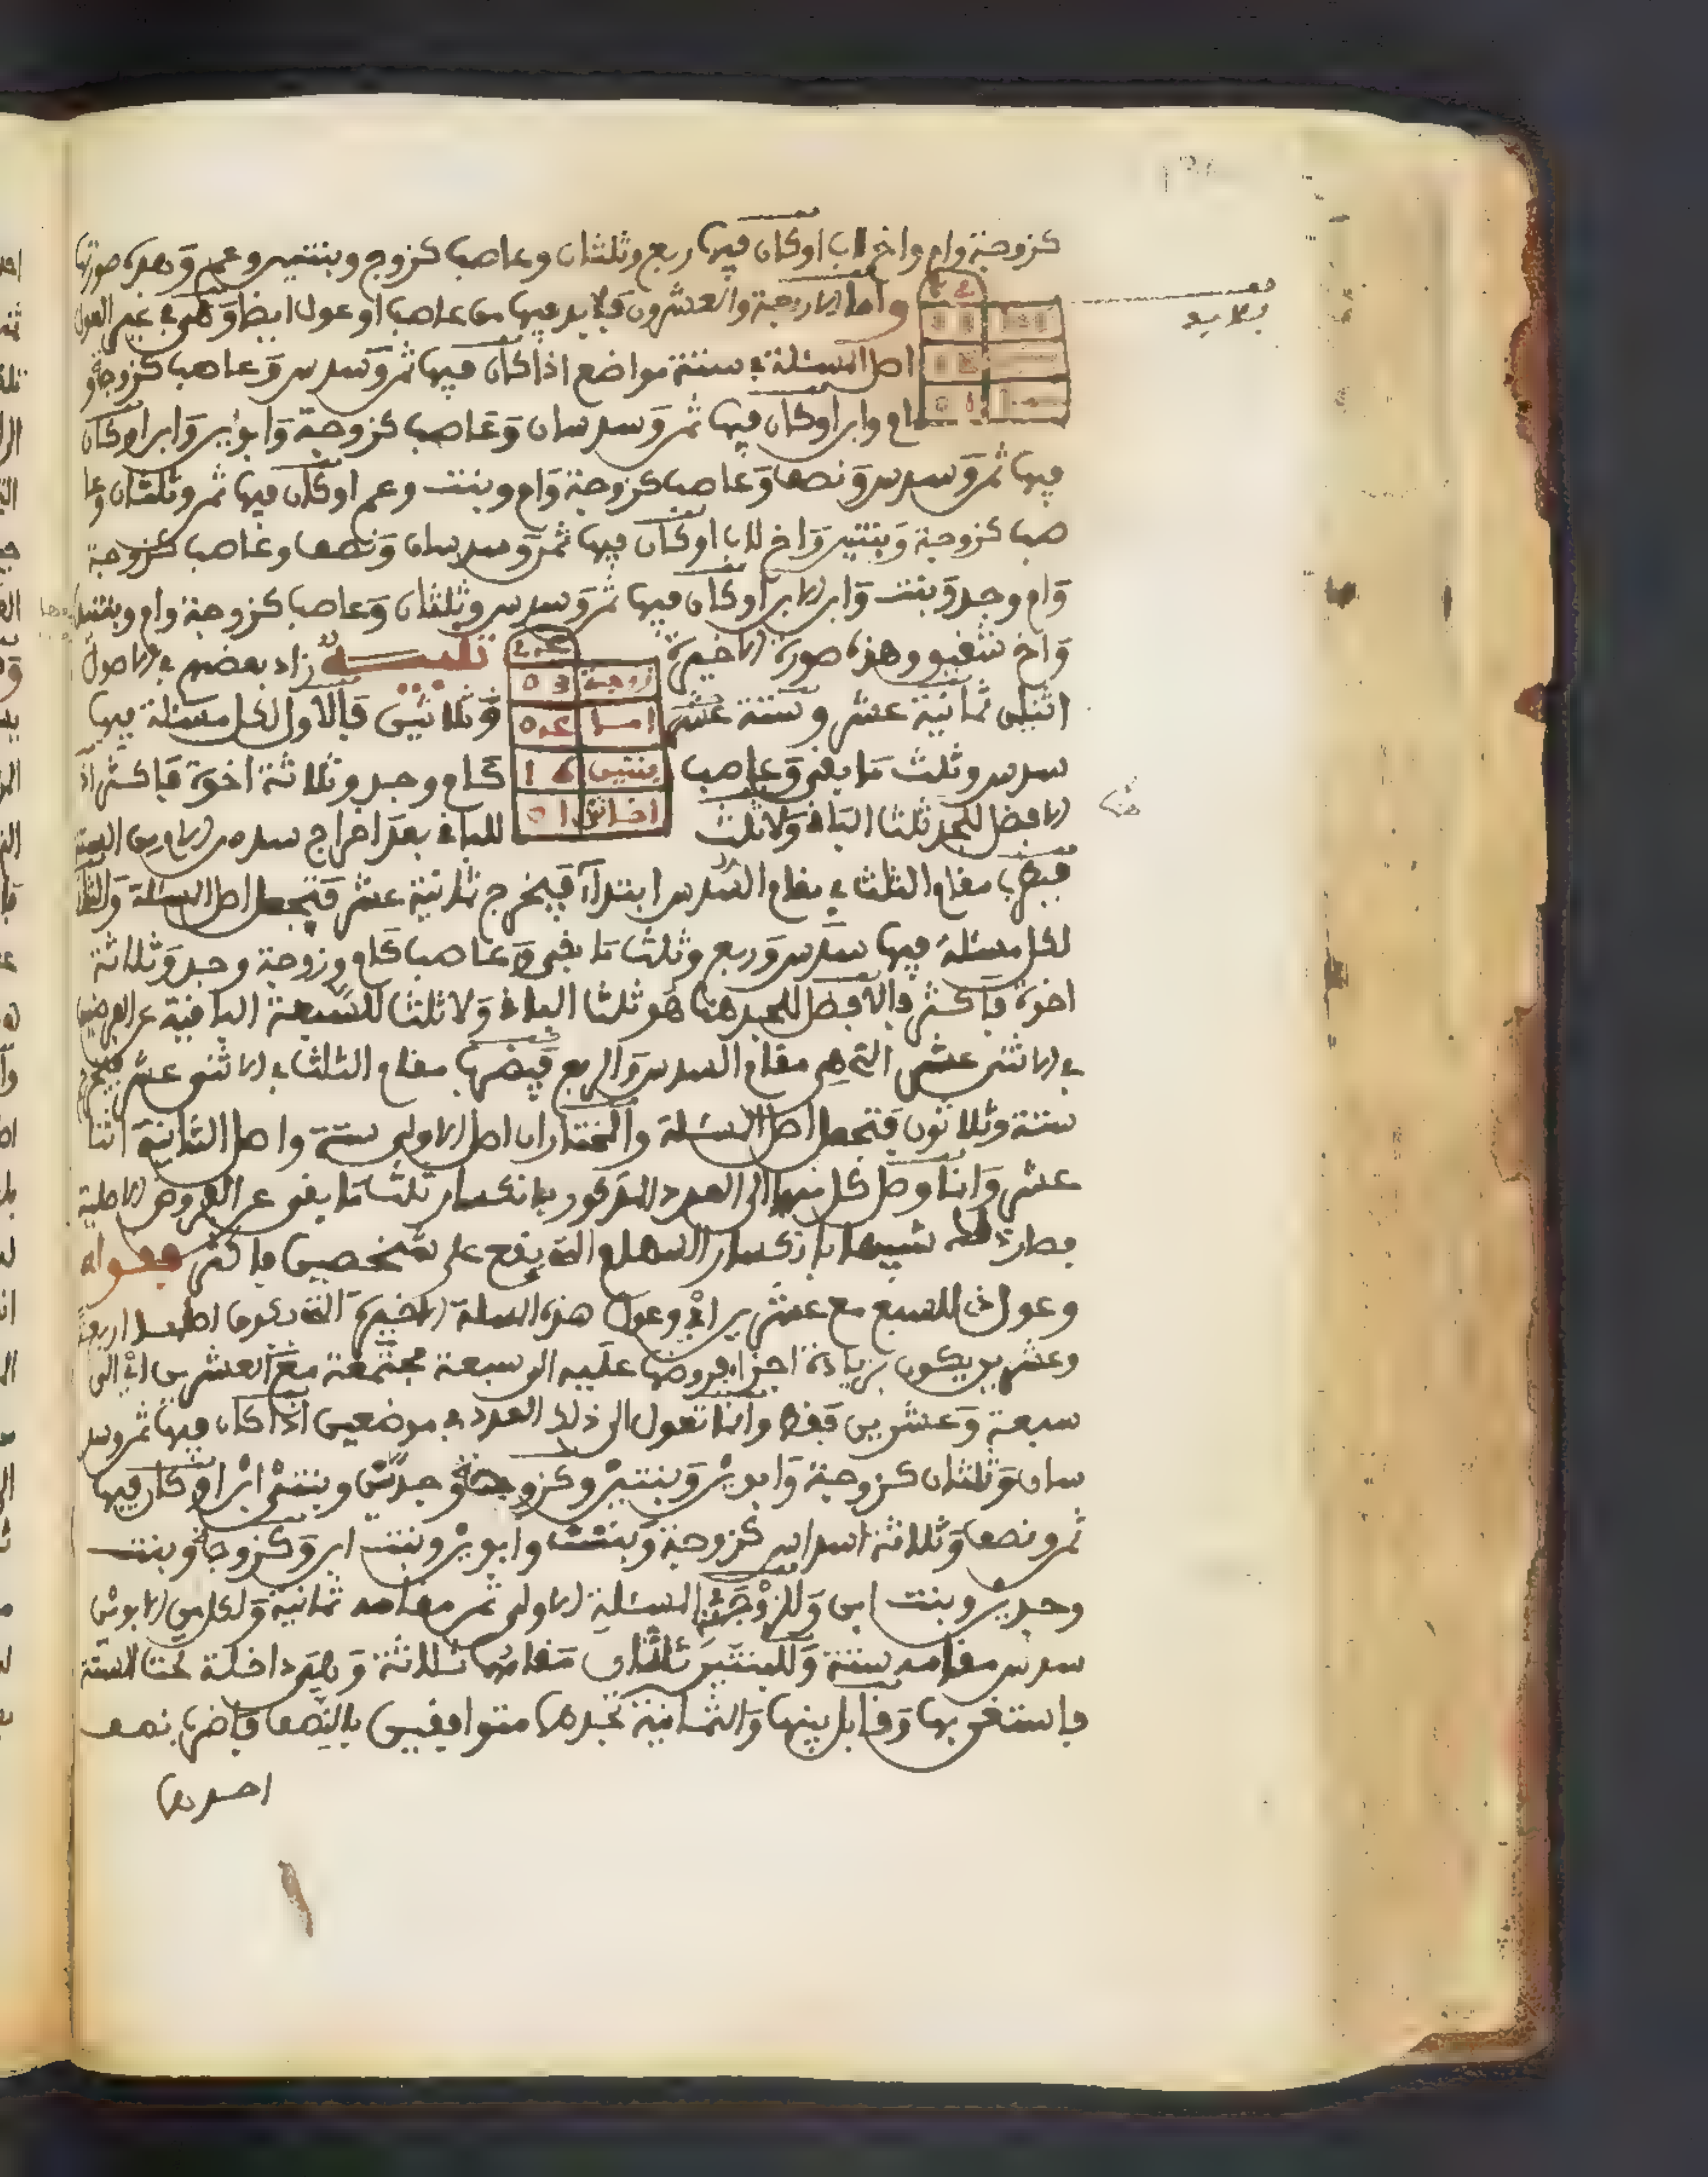 كزوجة وام واخ لاب او كان فيها ربع وثلثان وعاصب كزوج وبنتين وعم وهذه صورتها
واما الاربعة والعشرون فلا بد فيها من عاصب او عول ايضا وهي في غير العول
فلا بد
اصل المسئلة في ستة مواضع اذا كان فيها ثمن وسدس وعاصب كزوجة و
ام وابن او كان فيها ثمن وسدسان وعاصب كزوجة وابوين وابن او كان
فيها ثمن وسدس ونصف وعاصب كزوجة وام وبنت وعم او كان فيها ثمن وثلثان وعا
صب كزوجة وبنتين واخ لاب او كان فيها ثمن وسدسان ونصف وعاصب كزوجة
وام وجد وبنت وابن ابن او كان فيها ثمن وسدس وثلثان وعاصب كزوجة وام وبنتين
واخ شقيق وهذه صورة الاخيرة تنبيه زاد بعضهم في الاصول
زوجة 03
اثنين ثمانية عشر وستة عشر وثلاثين فالاول لكل مسئلة فيها
ام
سدس وثلث ما بقي وعاصب كام وجد وثلاثة اخوة فاكثر اذ
بنتين 16
الافضل للجد ثلث الباقي ولا ثلث للباقي بعد اخراج سدس الام من الستة
اخ ش 01
فيضرب مقام الثلث في مقام السدس ابتداء فيخرج ثمانية عشر فتجعل اصل المسئلة والثاني
لكل مسئلة فيها سدس وربع وثلث ما بقي وعاصب كام وزوجة وجد وثلاثة
اخوة فاكثر فالافضل للجد هنا هو ثلث الباقي ولا ثلث للسبعة الباقية عن الفرضين
في الاثنى عشر التي هي مقام السدس والربع فيضرب مقام الثلث في الاثنى عشر فيخرج
ستة وثلاثون فتجعل اصل المسئلة والمختار ان اصل الاولى ستة واصل الثانية اثنا
عشر وانما وصل كل منهما الى العدد المذكور بانكسار ثلث ما بقي عن الفروض الاصلية
فصار ذلك شبيها بانكسار السهام التي يقع على شخصين فاكثر فقوله
وعول للسبع مع عشرين اي وعول هذه المسلة الاخيرة التي يكون اصلها اربعة
وعشرين يكون بزيادة اجزاء فروضها عليه الى سبعة مجتمعة مع العشرين اي الى
سبعة وعشرين فقط وانما تعول الى ذلك العدد في موضعين اذا كان فيها ثمن وسد
سان وثلثان كزوجة وابوين وبنتين وكزوجة وجدين وبنتي ابن او كان فيها
ثمن ونصف وثلاثة اسداس كزوجة وبنت وابوين وبنت ابن وكزوجة وبنت
وجدين وبنت ابن وللزوجة في المسئلة الاولى ثمن مقامه ثمانية ولكل من الابوين
سدس مقامه ستة وللبنتين ثلثان مقامها ثلاثة وهي داخلة تحت الستة
فاستغن بها وقابل بينها والثمانية تجدهما متوافقين بالنصف فاضرب نصف
احدهما